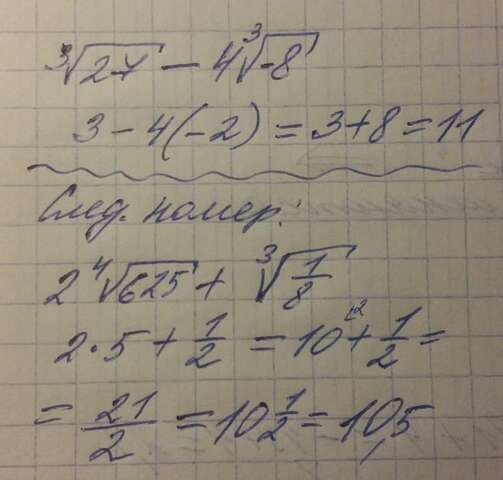 ³√27 − 4 ³√-8
3 − 4(−2) = 3+8 = 11
След. номер:
2 ⁴√625 + ³√1/8
2·5 + 1/2 = 10 + 1/2 =
= 21/2 = 10 1/2 = 10,5